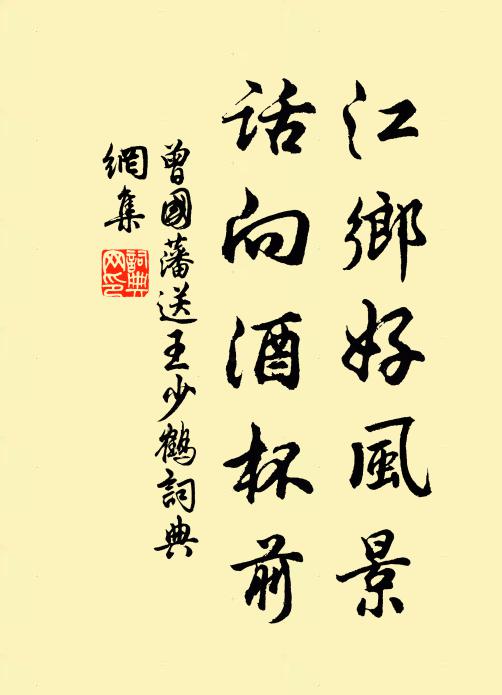 江鄉好風景
话向酒杯前
曾國藩送王少鶴詞典
網集
詞典
网印